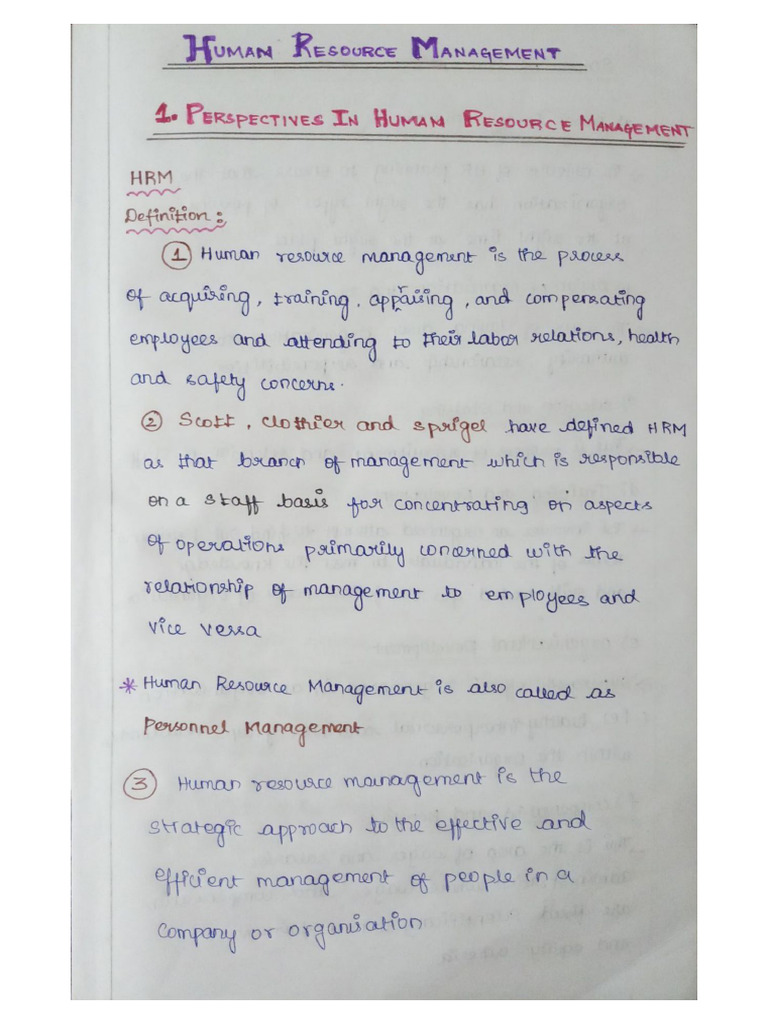 HUMAN RESOURCE MANAGEMENT
1. PERSPECTIVES IN HUMAN RESOURCE MANAGEMENT
HRM
Definition:
① Human resource management is the process
of acquiring, training, appraising, and compensating
employees and attending to their labor relations, health
and safety concerns.
② Scott, Clothier and Sprigel have defined HRM
as that branch of management which is responsible
on a staff basis for concentrating on aspects
of operations primarily concerned with the
relationship of management to employees and
vice versa
* Human Resource Management is also called as
Personnel Management
③ Human resource management is the
strategic approach to the effective and
efficient management of people in a
company or organisation